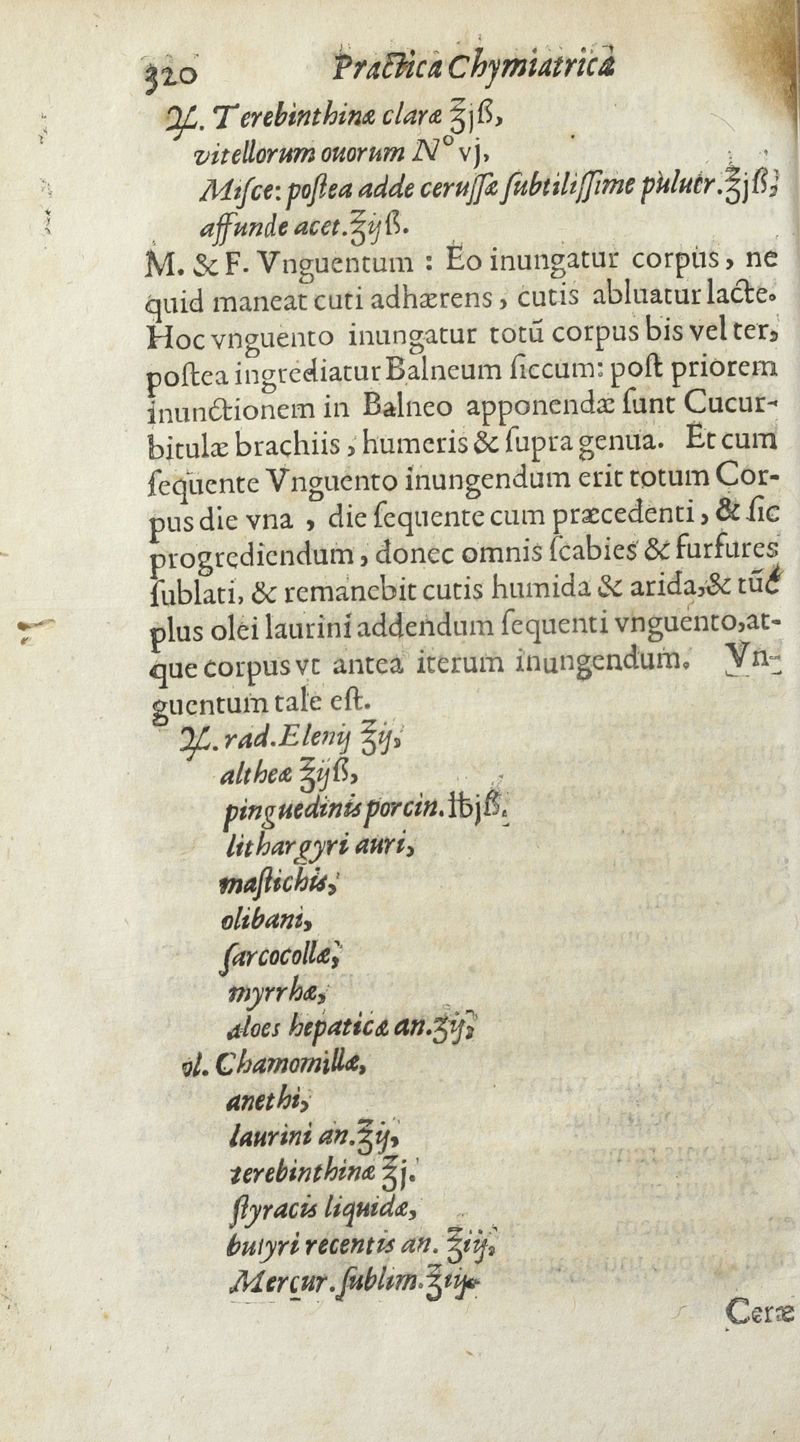 320 Practica Chymiatrica
℞. Terebinthinæ claræ ℥jß,
vitellorum ouorum N° vj,
Misce: postea adde cerussæ subtilissime puluer. ℥jß,
affunde acet. ℥ijß.
M. & F. Vnguentum : Eo inungatur corpus, ne
quid maneat cuti adhærens, cutis abluatur lacte.
Hoc vnguento inungatur totū corpus bis vel ter,
postea ingrediatur Balneum siccum: post priorem
inunctionem in Balneo apponendæ sunt Cucur-
bitulæ brachiis, humeris & supra genua. Et cum
sequente Vnguento inungendum erit totum Cor-
pus die vna , die sequente cum præcedenti, & sic
progrediendum, donec omnis scabies & furfures
sublati, & remanebit cutis humida & arida,& tūc
plus olei laurini addendum sequenti vnguento,at-
que corpus vt antea iterum inungendum. Vn-
guentum tale est.
℞. rad. Elenij ℥ij,
altheæ ℥ijß,
pinguedinis porcin. ℔jß.
lithargyri auri,
mastichis,
olibani,
sarcocollæ,
myrrhæ,
aloes hepaticæ an. ʒij,
ol. Chamomillæ,
anethi,
laurini an. ℥ij,
terebinthinæ ℥j.
styracis liquidæ,
butyri recentis an. ℥iij,
Mercur. sublim. ℥iij
Ceræ